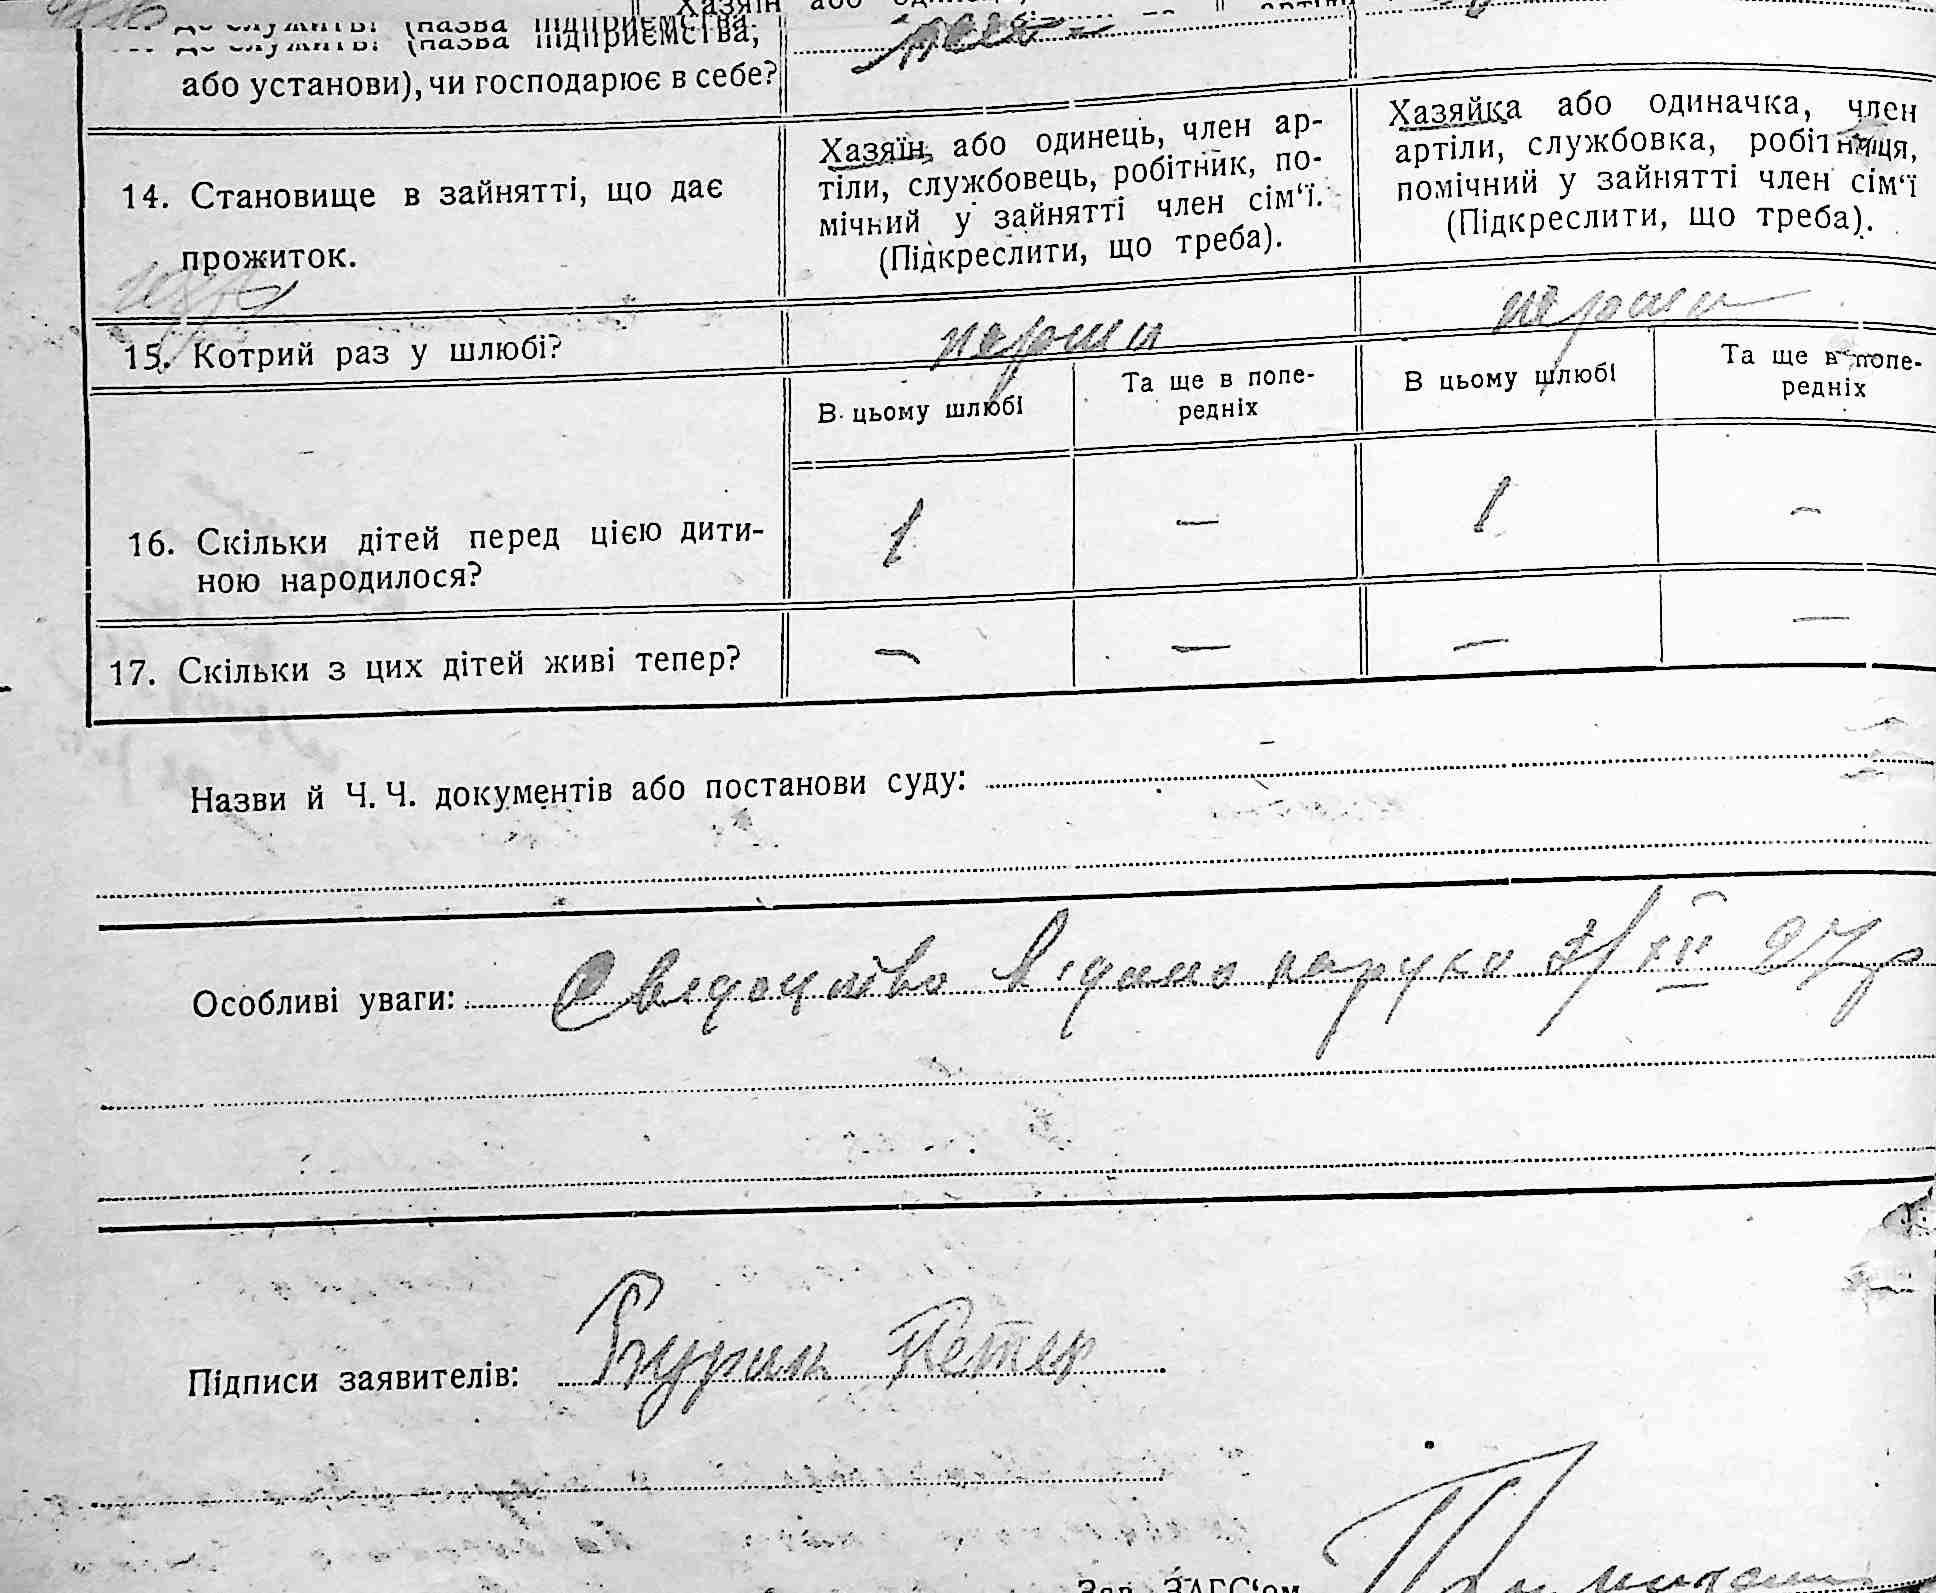 Хазяїн або
де служить? (назва підприємства,
або установи), чи господарює в себе?
14. Становище в зайнятті, що дає
прожиток.
Хазяїн, або одинець, член ар-
тіли, службовець, робітник, по-
мічний у зайнятті член сім‘ї.
(Підкреслити, що треба).
Хазяйка або одиначка, член
артіли, службовка, робітниця,
помічний у зайнятті член сім‘ї
(Підкреслити, що треба).
15. Котрий раз у шлюбі?
перши
перши
В цьому шлюбі
Та ще в попе-
редніх
В цьому шлюбі
Та ще в попе-
редніх
16. Скільки дітей перед цією дити-
ною народилося?
1 — 1 —
17. Скільки з цих дітей живі тепер?
— — — —
Назви й Ч. Ч. документів або постанови суду:
Особливі уваги: Свідоцтво видано на руки 7/XII 27р
Підписи заявителів: Петер
Зав. ЗАГС‘ом